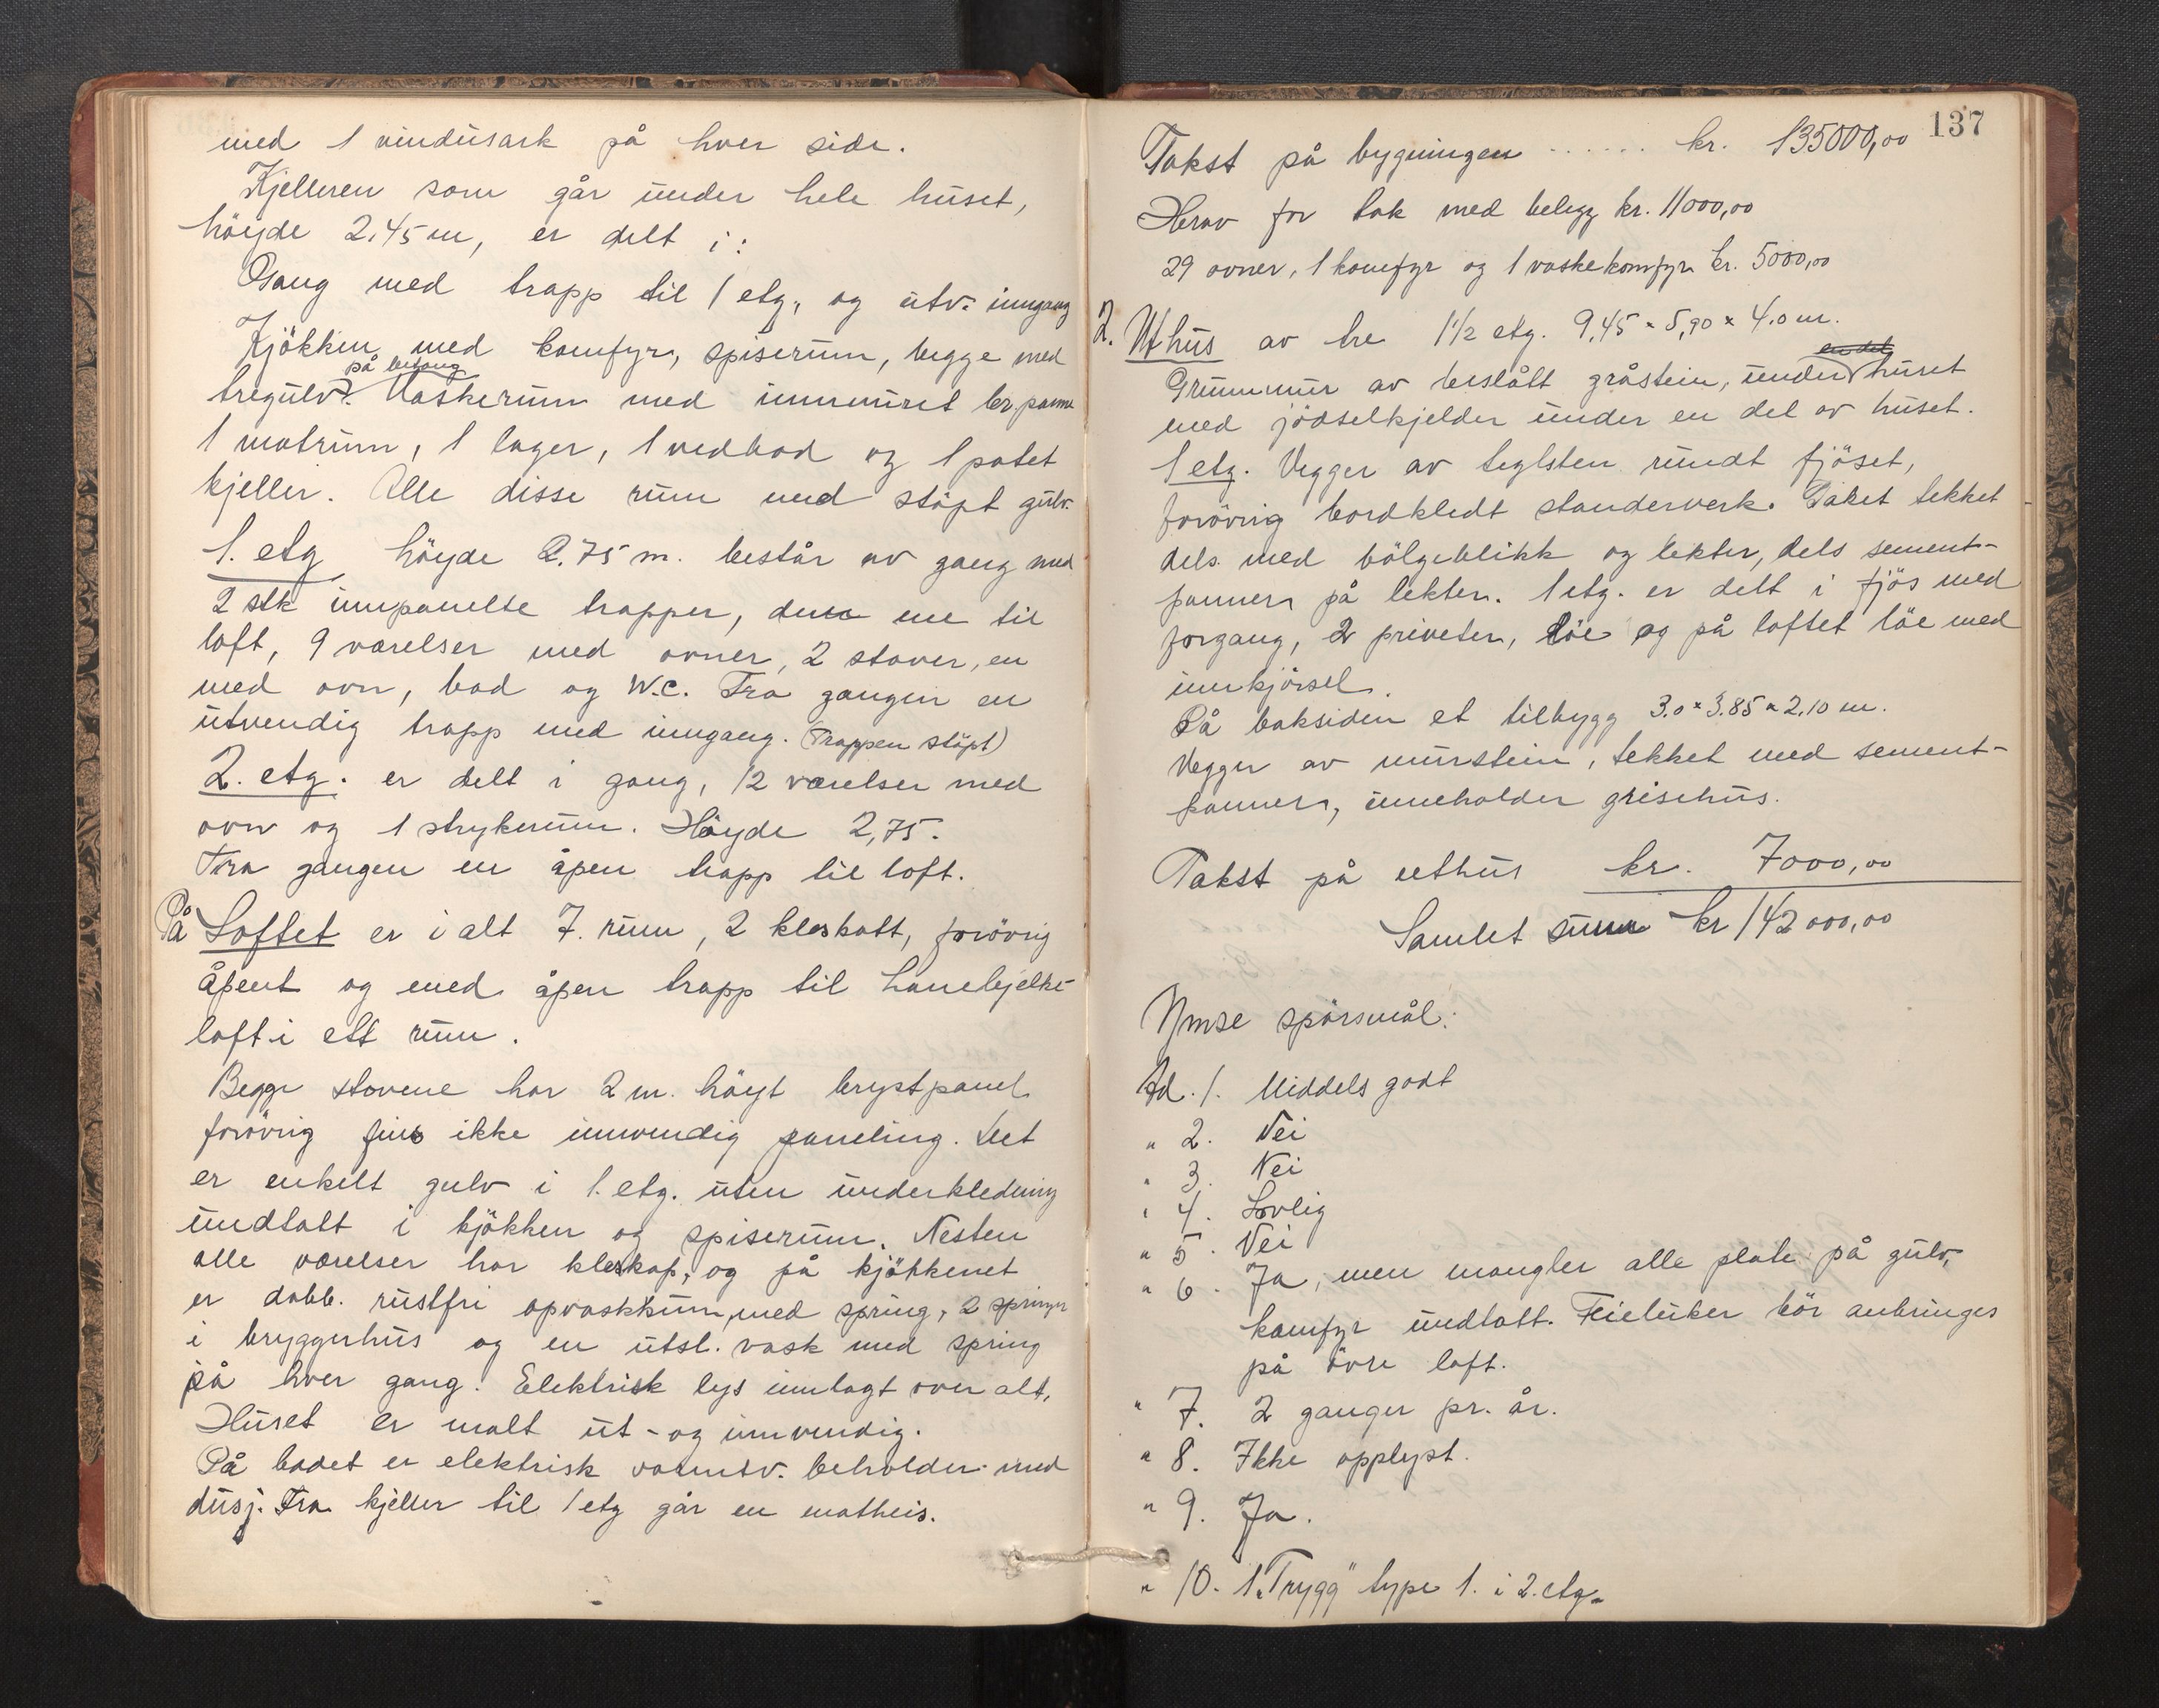 med 1 vindusark på hver side.
Kjelleren som går under hele huset,
höyde 2,45 m, er delt i:
Gang med trapp til 1 etg, og utv. inngang
Kjökken med komfyr, spiserum, begge med
på betong
tregulv. Vaskerum med innmuret br.panne
1 matrum, 1 lager, 1 vedbod og 1 potet
kjeller. Alle disse rum med stöpt gulv.
1. etg höyde 2.75 m. består av gang med
2 stk innpanelte trapper, den ene til
loft, 9 værelser med ovner, 2 stover, en
med ovn, bad og W.C. Fra gangen en
utvendig trapp med inngang. (Trappen stöpt)
2. etg. er delt i gang, 12 værelser med
ovn og 1 strykerum. Höyde 2,75.
Fra gangen en åpen trapp til loft.
På Loftet er i alt 7. rum, 2 kleskott, forövrig
åpent og med åpen trapp til hanebjelke-
loft i ett rum.
Begge stovene har 2 m. höyt brystpanel
forövrig fins ikke innvendig paneling. Det
er enkelt gulv i 1. etg. uten underkledning
undtatt i kjökken og spiserum. Nesten
alle værelser har kleskap, og på kjökkenet
er dobb. rustfri opvaskkum, med spring, 2 springer
i bryggerhus og en utsl. vask med spring
på hver gang. Elektrisk lys innlagt over alt,
Huset er malt ut- og innvendig.
På badet er elektrisk varmtv. beholder med
dusj. Fra kjeller til 1 etg går en matheis.
137
Takst på bygningen ...... kr. 135000,00
Herav for tak med belegg kr. 11000,00
29 ovner, 1 komfyr og 1 vaskekomfyr kr. 5000,00
2. Uthus av tre 1½ etg. 9,45 × 5,90 × 4.0 m.
en del
Grunnmur av beslått gråstein, under huset
med jödselkjelder under en del av huset.
1 etg. Vegger av teglsten rundt fjöset,
forövrig bordkledt standerverk. Taket tekket
dels med bölgeblikk og lekter, dels sement-
panner på lekter. 1 etg. er delt i fjös med
forgang, 2 priveter, löe og på loftet löe med
innkjörsel.
På baksiden et tilbygg 3.0 × 3.85 × 2.10 m.
Vegger av murstein, tekket med sement-
panner, inneholder grisehus.
Takst på uthus kr. 7000,00
Samlet sum kr 142000,00
Ymse spörsmål:
Ad. 1. Middels godt
" 2. Nei
" 3. Nei
" 4. Lovlig
" 5. Nei
" 6. Ja, men mangler alle plate på gulv,
komfyr undtatt. Feieluker bör anbringes
på övre loft.
" 7. 2 ganger pr. år.
" 8. Ikke opplyst.
" 9. Ja.
" 10. 1 "Trygg" type 1. i 2. etg.